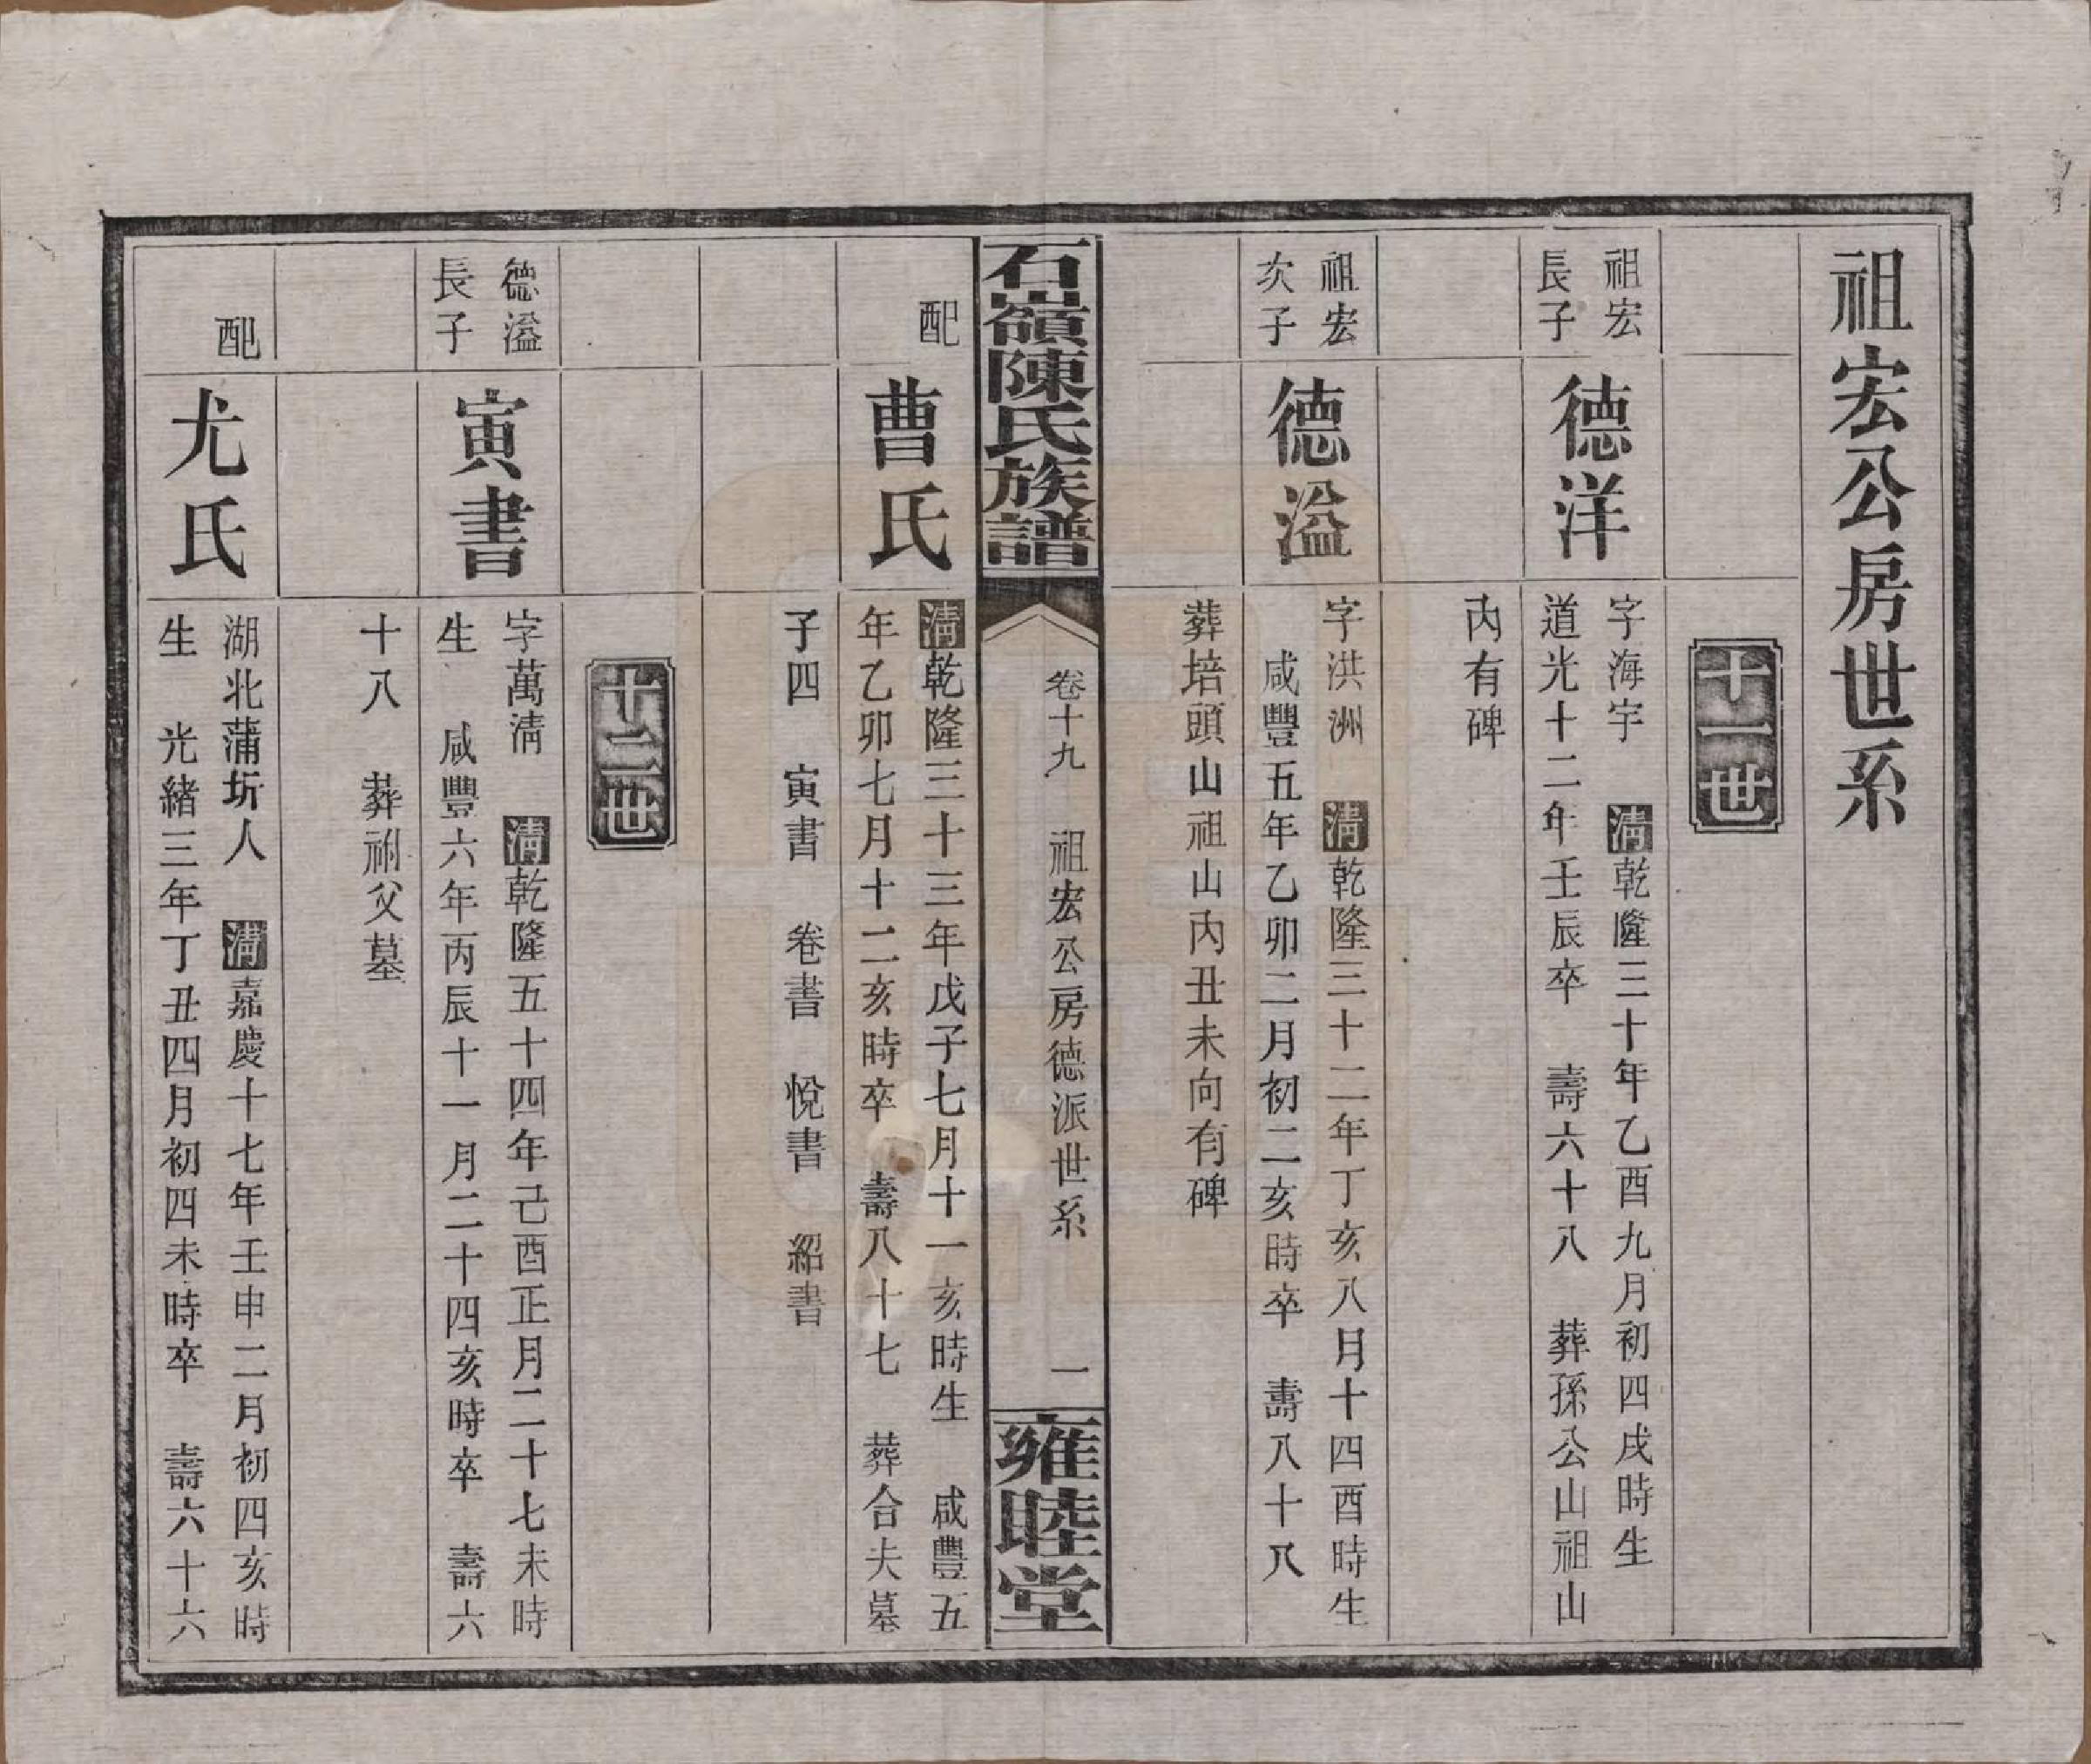 祖宏公房世系
十一世
祖宏
長子
德洋
字海宇　清乾隆三十年乙酉九月初四戌時生
道光十二年壬辰卒　壽六十八　葬孫公山祖山
內有碑
祖宏
次子
德溢
字洪洲　清乾隆三十二年丁亥八月十四酉時生
咸豐五年乙卯二月初二亥時卒　壽八十八
葬培頭山祖山內丑未向有碑
石嶺陳氏族譜
卷十九　祖宏公房德派世系　一
雍睦堂
配
曹氏
清乾隆三十三年戊子七月十一亥時生　咸豐五
年乙卯七月十二亥時卒　壽八十七　葬合夫墓
子四　寅書　卷書　悅書　紹書
十二世
德溢
長子
寅書
字萬清　清乾隆五十四年己酉正月二十七未時
生　咸豐六年丙辰十一月二十四亥時卒　壽六
十八　葬祔父墓
配
尤氏
湖北蒲圻人　清嘉慶十七年壬申二月初四亥時
生　光緒三年丁丑四月初四未時卒　壽六十六